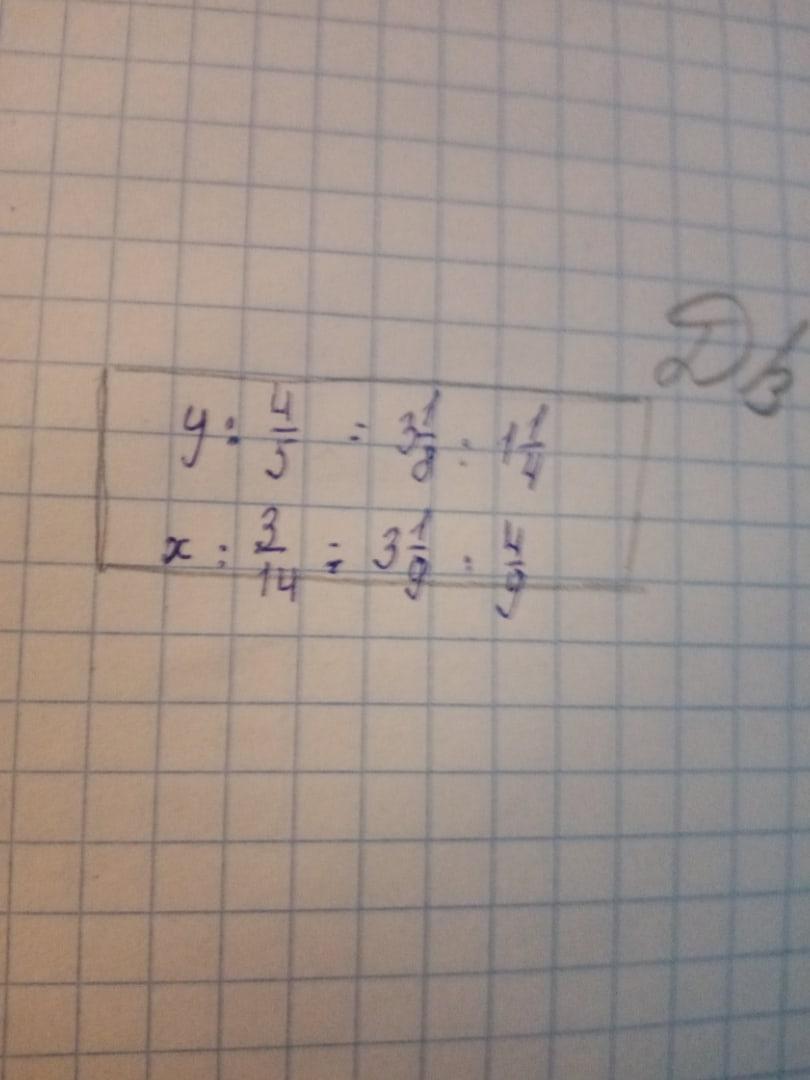 Дз
y : 4/5 = 3 1/8 : 1 1/4
x : 3/14 = 3 1/9 : 4/9